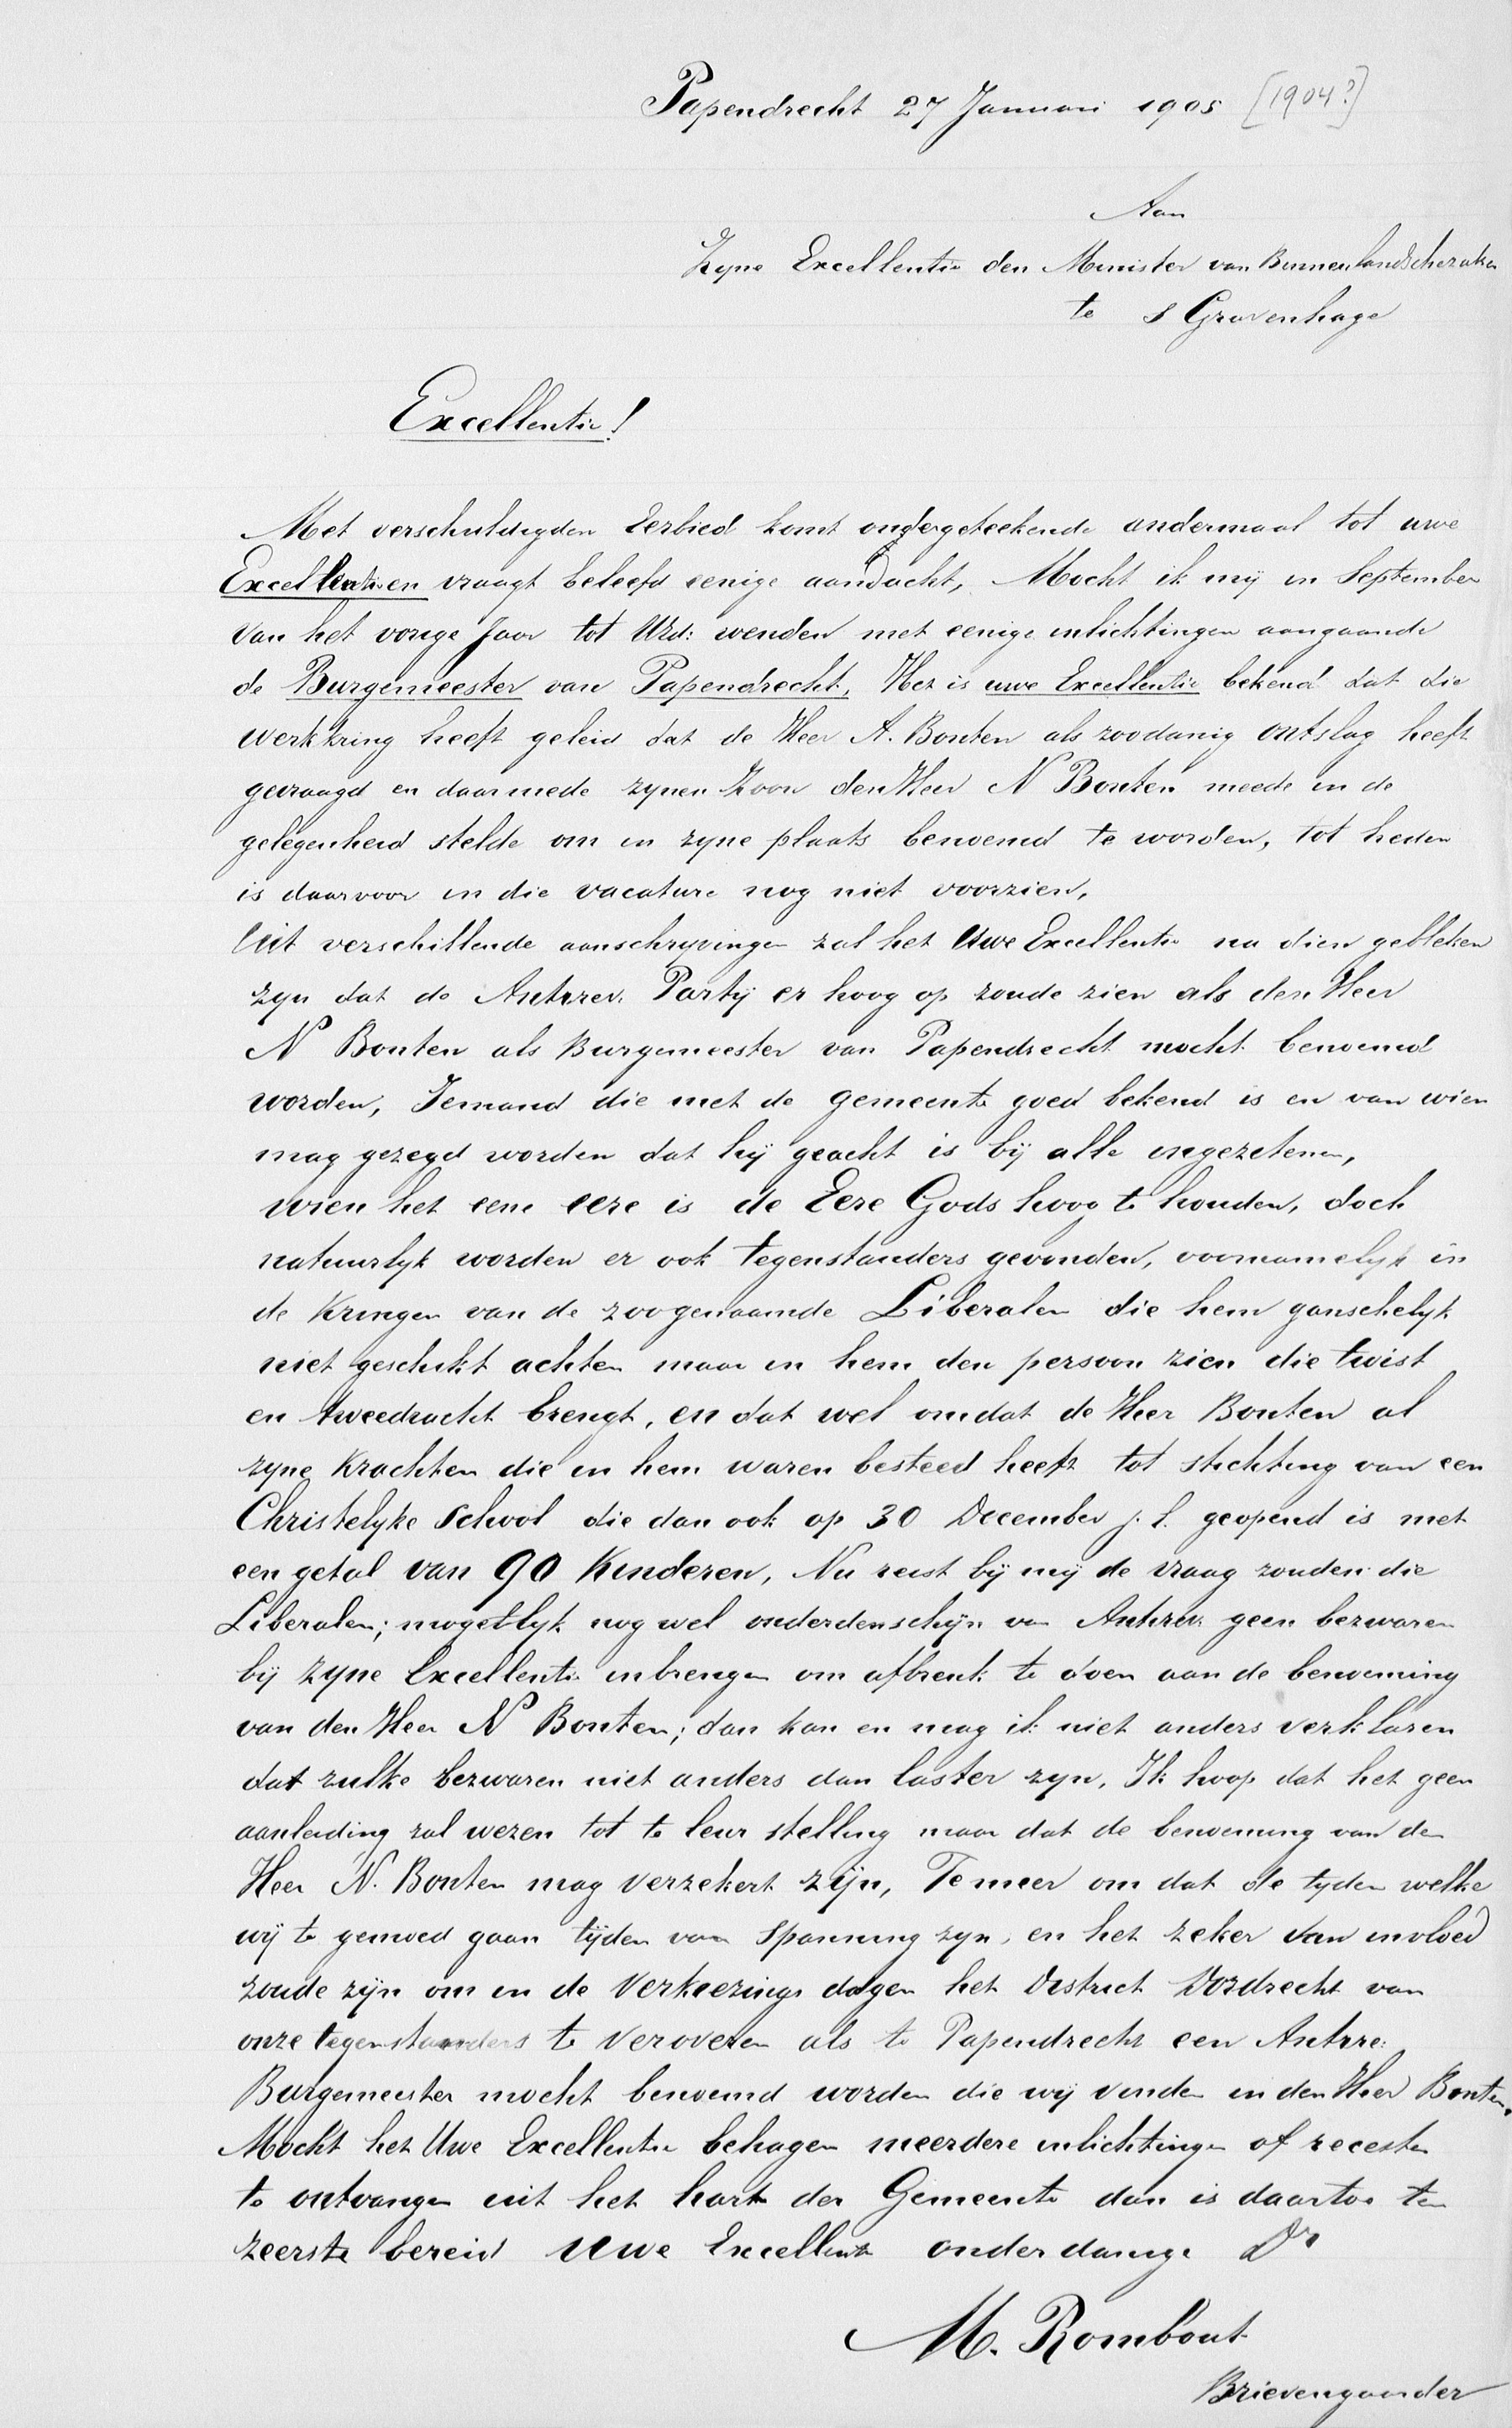 Papendrecht 27 Januari 1905 [1904?]
Aan
Zyne Excellentie den Minister van Binnenlandschezaken
te s Gravenhage
Excellentie!
Met verschuldigden Eerbied komt ondergeteekende andermaal tot uwe
Excellentie en vraagt beleefd eenige aandacht, Mocht ik mij in September
van het vorige Jaar tot UEd: wenden met eenige inlichtingen aangaande
de Burgemeester van Papendrecht, Het is uwe Excellentie bekend dat die
werkkring heeft geleid dat de Heer A. Bonten als zoodanig ontslag heeft
gevraagd en daarmede zynen Zoon den Heer N Bonten meede in de
gelegenheid stelde om in zyne plaats benoemd te worden, tot heden
is daarvoor in die vacature nog niet voorzien,
Uit verschillende aanschryvingen zal het Uwe Excellentie na dien gebleken
zyn dat de Antirev. Partij er hoog op zoude zien als den Heer
N Bonten als Burgemeester van Papendrecht mocht benoemd
worden, Iemand die met de gemeente goed bekend is en van wien
mag gezegd worden dat hij geacht is bij alle ingezetenen,
wien het eene eere is de Eere Gods hoog te houden, doch
natuurlyk worden er ook tegenstanders gevonden, voornamelyk in
de Kringen van de zoogenaamde Liberalen die hem ganschelyk
niet geschikt achten maar in hem den persoon zien die twist
en tweedracht brengt, en dat wel omdat de Heer Bonten al
zyne Krachten die in hem waren besteed heeft tot stichting van een
Christelyke School die dan ook op 30 December j.l. geopend is met
een getal van 90 Kinderen, Nu reist bij mij de vraag zouden die
Liberalen; mogelyk nog wel onderdenschijn van Antirev. geen bezwaren
bij Zyne Excellentie inbrengen om afbreuk te doen aan de benoeming
van den Heer N Bonten; dan kan en mag ik niet anders verklaren
dat zulke bezwaren niet anders dan laster zyn. Ik hoop dat het geen
aanleiding zal wezen tot te leur stelling maar dat de benoeming van den
Heer N. Bonten mag verzekert zijn, Te meer om dat de tyden welke
wij te gemoed gaan tijden van Spanning zyn, en het zeker van invloed
zoude zijn om in de Verkiezings dagen het District Dordrecht van
onze tegenstanders te veroveren als te Papendrecht een Antire:
Burgemeester mocht benoemd worden die wij vinden in den Heer Bonten.
Mocht het Uwe Excellentie behagen meerdere inlichtingen of
te ontvangen uit het hart der Gemeente dan is daartoe ten
zeerste bereid Uwe Excellentie onderdanige Dr
M. Rombout
Brievengaarder